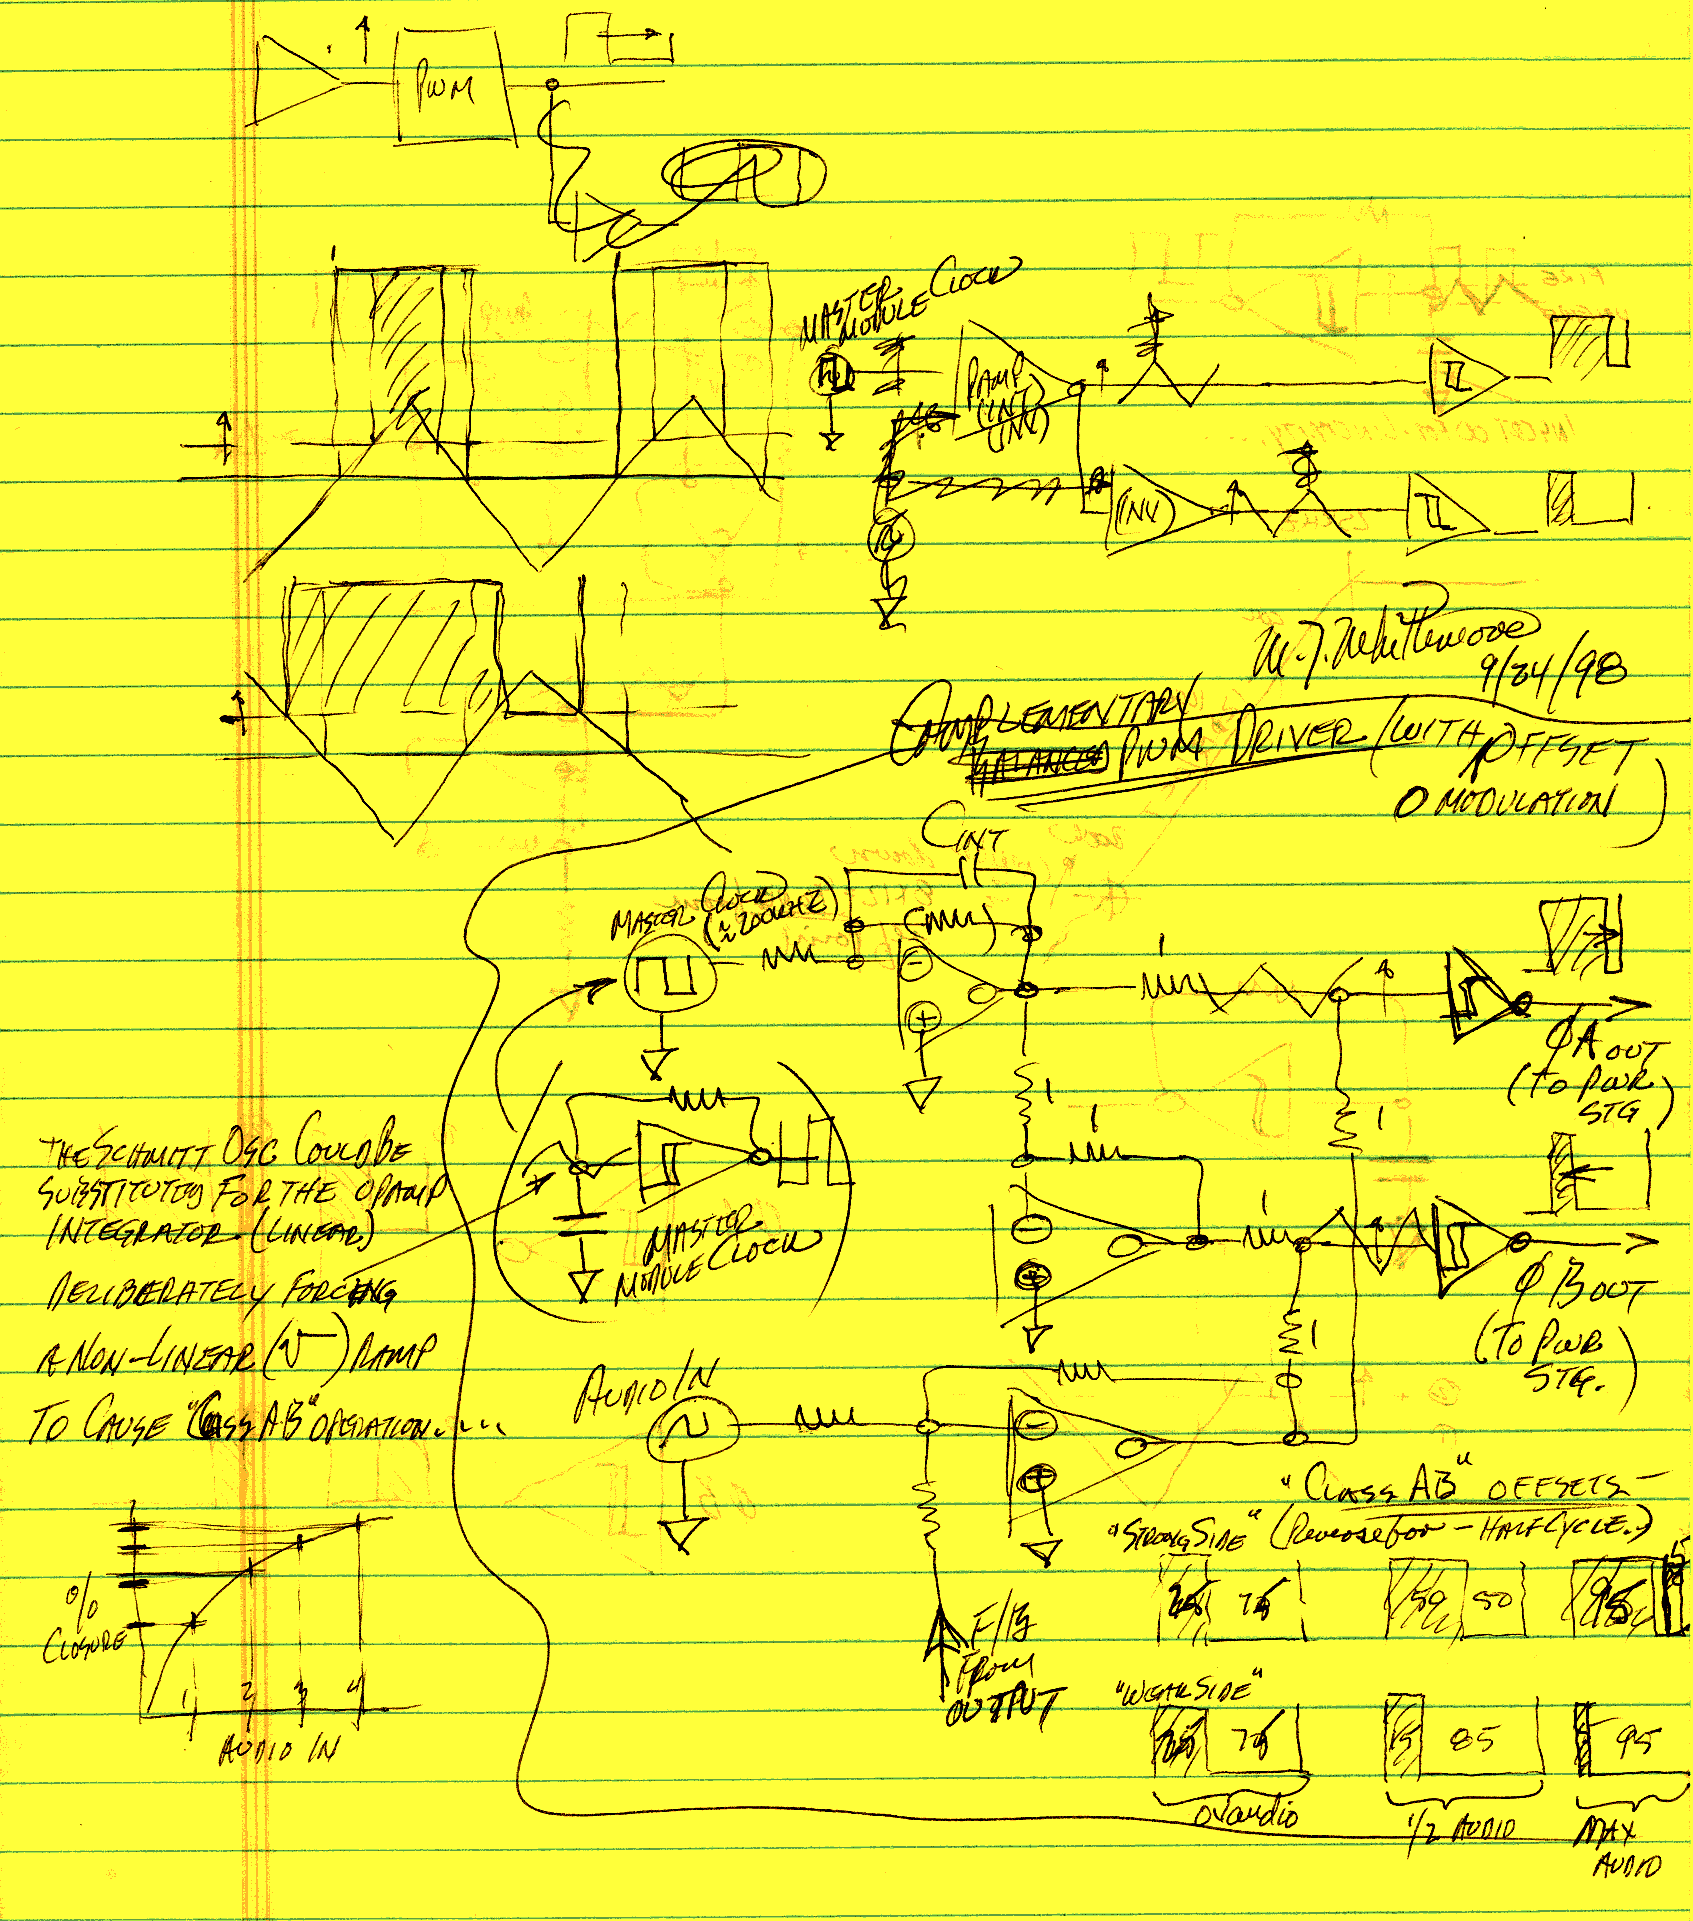 PWM
MASTER CLOCK
MODULE
RAMP
(INT)
(INV)
(INV)
9/24/98
COMPLEMENTARY
BALANCED PWM DRIVER (WITH OFFSET
MODULATION)
CINT
MASTER CLOCK
(≈200KHZ)
1
φA OUT
(TO PWR
STG)
1
1
1
THE SCHMITT OSC COULD BE
SUBSTITUTED FOR THE OPAMP
INTEGRATOR (LINEAR)
DELIBERATELY FORCING
A NON-LINEAR RAMP
TO CAUSE "CLASS AB" OPERATION.....
MASTER
MODULE CLOCK
1
1
φB OUT
(TO PWR
STG.)
AUDIO IN
"CLASS AB" OFFSETS -
"STRONG SIDE" (Reverse for - HALF CYCLE.)
25 75
50 50
95 5
%
CLOSURE
1 2 3 4
AUDIO IN
F/B
FROM
OUTPUT
"WEAK SIDE"
25 75
15 85
95
0V audio
1/2 AUDIO
MAX
AUDIO